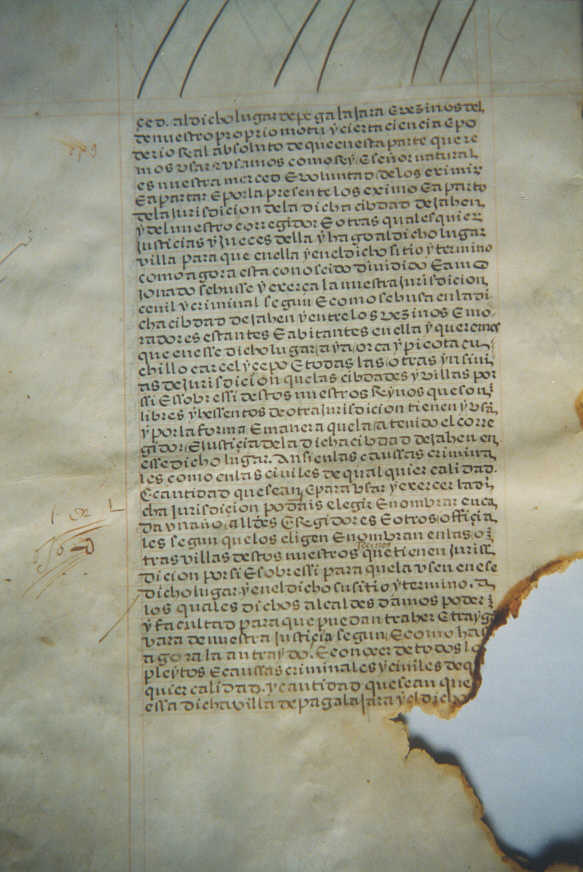 ced. al dicho lugar de pegalajara E vezinos del,
de nuestro proprio motu y cierta ciencia E po
derio Real absoluto de que en esta parte quere
mos vsar E vsamos como Rey E señor natural
es nuestra merced E voluntad de los eximir
E apartar E por la presente los eximo E aparto
de la Jurisdicion de la dicha cibdad de Jahen,
y del nuestro corregidor E otras quales quier
Justicias y Jueces della y hago al dicho lugar
villa para que en ella y en el dicho sitio y termino
como agora esta conoscido diuidido E amo
Jonado se husse y exerça la nuestra Jurisdicion,
ceuil y criminal segun E como se husa en la di
cha cibdad de Jahen y entre los vezinos E mo
radores estantes E abitantes en ella y queremos
que en esse dicho lugar aya, orca y picota cu
chillo carcel y cepo E todas las otras ynsini
as de Jurisdicion que las cibdades y villas por
ssi E ssobre ssi destos nuestros Reynos que son
libres y hessentos de otra Jurisdicion tienen y vsā,
y por la forma E manera que la a tenido el corre
gidor E Justicia de la dicha cibdad de Jahen en
esse dicho lugar. Ansi en las caussas crimina
les como en las ciuiles de qual quier calidad.
E cantidad que sean, E para vsar y exercer la di
cha Jurisdicion podais elegir E nombrar en ca
da vn año, alldes E Regidores E otros officia
les segun que los eligen E nombran en las o
tras villas destos nuestros Reinos que tienen Juris
dicion por si E ssobre ssi para que la vsen en ese
dicho lugar y en el dicho su sitio y termino. A
los quales dichos alcaldes damos poder
y facultad para que puedan traher E trayg
vara de nuestra Justicia segun E como has
agora la an traydo. E conoscer de todos lo
pleytos E caussas criminales y ciuiles de q
quier calidad. y cantidad que sean que
essa dicha villa de pagalajara y el dicho